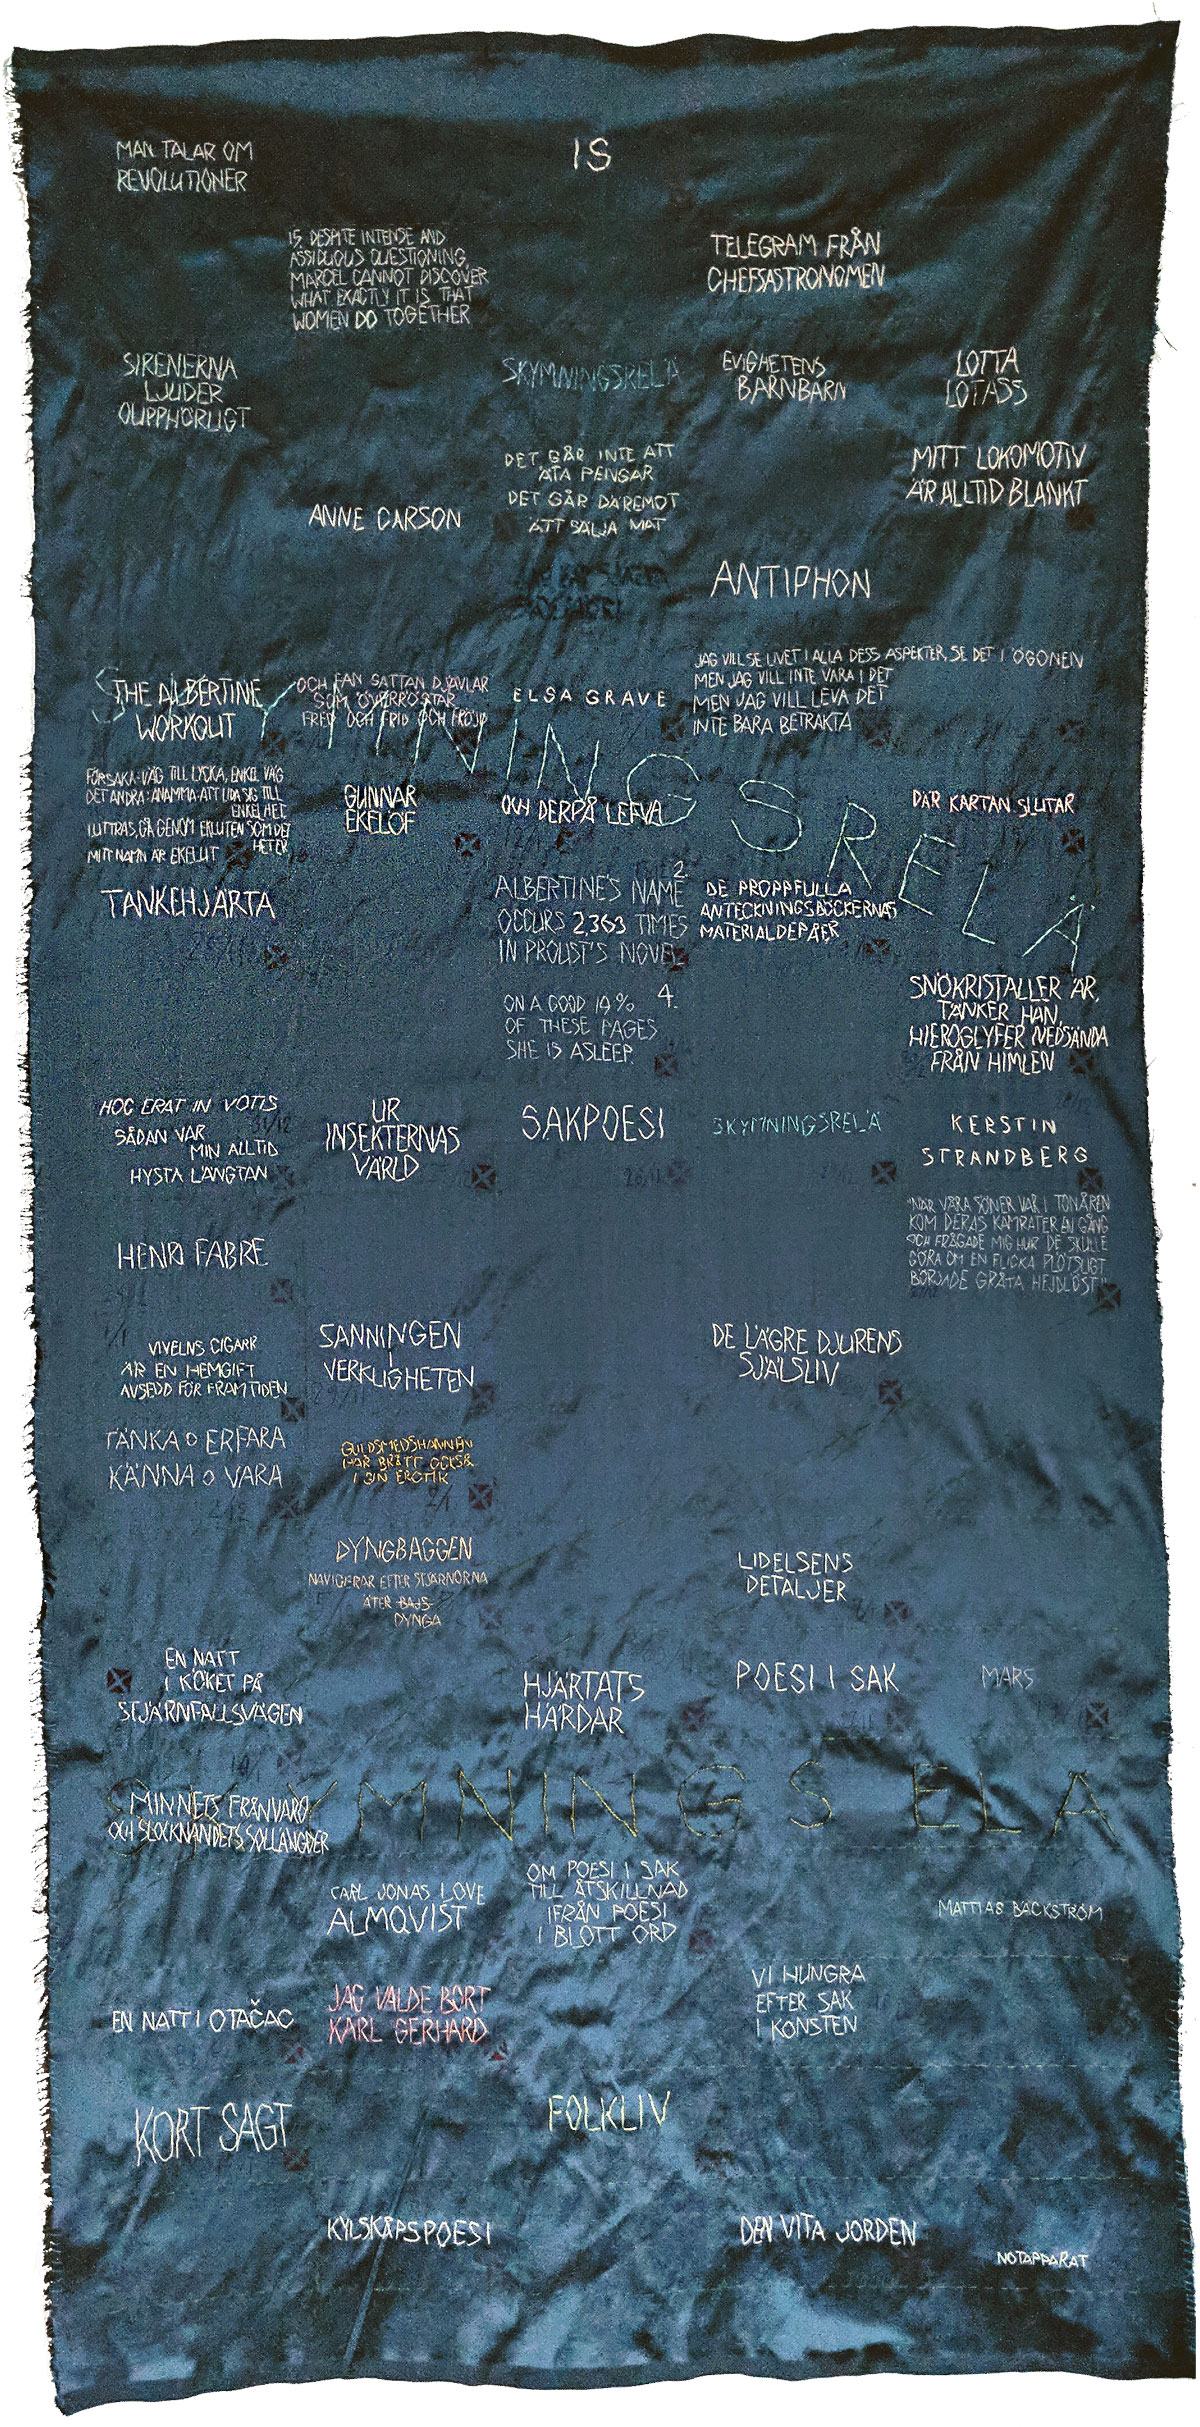 MAN TALAR OM
REVOLUTIONER
IS
15. DESPITE INTENSE AND
ASSIDUOUS QUESTIONING
MARCEL CANNOT DISCOVER
WHAT EXACTLY IT IS THAT
WOMEN DO TOGETHER
TELEGRAM FRÅN
CHEFSASTRONOMEN
SIRENERNA
LJUDER
OUPPHÖRLIGT
SKYMNINGSRELÄ
EVIGHETENS
BARNBARN
LOTTA
LOTASS
ANNE CARSON
DET GÅR INTE ATT
ÄTA PENGAR
DET GÅR DÄREMOT
ATT SÄLJA MAT
MITT LOKOMOTIV
ÄR ALLTID BLANKT
ANTIPHON
THE ALBERTINE
WORKOUT
OCH FAN SATTAN DJÄVLAR
SOM ÖVERRÖSTAR
FRED OCH FRID OCH FRÖJD
ELSA GRAVE
JAG VILL SE LIVET I ALLA DESS ASPEKTER, SE DET I ÖGONEN
MEN JAG VILL INTE VARA I DET
MEN JAG VILL LEVA DET
INTE BARA BETRAKTA
SKYMNINGSRELÄ
FÖRSAKA: VÄG TILL LYCKA, ENKEL VÄG
DET ANDRA: ANAMMA: ATT LIDA SIG TILL
ENKELHET
LUTTRAS, GÅ GENOM EKLUTEN SOM DET
HETER
MITT NAMN ÄR EKELUT
GUNNAR
EKELÖF
OCH DERPÅ LEFVA
DÄR KARTAN SLUTAR
TANKEHJÄRTA
2.
ALBERTINE'S NAME
OCCURS 2,363 TIMES
IN PROUST'S NOVEL
DE PROPPFULLA
ANTECKNINGSBÖCKERNAS
MATERIALDEPÅER
4.
ON A GOOD 19%
OF THESE PAGES
SHE IS ASLEEP.
SNÖKRISTALLER ÄR,
TÄNKER HAN,
HIEROGLYFER NEDSÄNDA
FRÅN HIMLEN
HOC ERAT IN VOTIS
SÅDAN VAR
MIN ALLTID
HYSTA LÄNGTAN
UR
INSEKTERNAS
VÄRLD
SAKPOESI
SKYMNINGSRELÄ
KERSTIN
STRANDBERG
HENRI FABRE
"NÄR VÅRA SÖNER VAR I TONÅREN
KOM DERAS KAMRATER EN GÅNG
OCH FRÅGADE MIG HUR DE SKULLE
GÖRA OM EN FLICKA PLÖTSLIGT
BÖRJADE GRÅTA HEJDLÖST"
VIVELNS CIGARR
ÄR EN HEMGIFT
AVSEDD FÖR FRAMTIDEN
SANNINGEN
I
VERKLIGHETEN
DE LÄGRE DJURENS
SJÄLSLIV
TÄNKA O ERFARA
KÄNNA O VARA
GULDSMEDSHANNEN
HAR BRÅTT OCKSÅ
I SIN EROTIK
DYNGBAGGEN
NAVIGERAR EFTER STJÄRNORNA
ÄTER BAJS
DYNGA
LIDELSENS
DETALJER
EN NATT
I KÖKET PÅ
STJÄRNFALLSVÄGEN
HJÄRTATS
HÄRDAR
POESI I SAK
MARS
SKYMNINGS ELA
MINNETS FRÅNVARO
OCH SLOCKNANDETS SOLLÄNGDER
CARL JONAS LOVE
ALMQVIST
OM POESI I SAK
TILL ÅTSKILLNAD
IFRÅN POESI
I BLOTT ORD
MATTIAS BÄCKSTRÖM
EN NATT I OTAČAC
JAG VALDE BORT
KARL GERHARD
VI HUNGRA
EFTER SAK
I KONSTEN
KORT SAGT
FOLKLIV
KYLSKÅPSPOESI
DEN VITA JORDEN
NOTAPPARAT